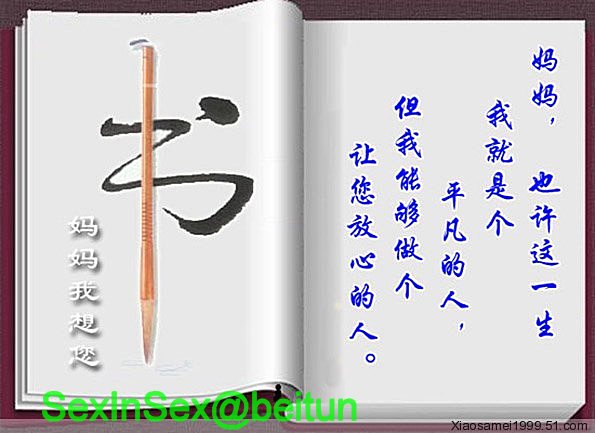 书
妈妈我想您
妈妈，也许这一生
我就是个
平凡的人，
但我能够做个
让您放心的人。
SexInSex@beitun
Xiaosamei1999.51.com